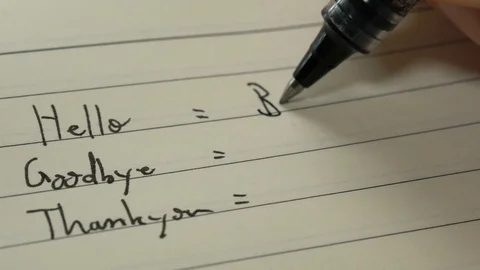 Hello = B
Goodbye =
Thankyou =